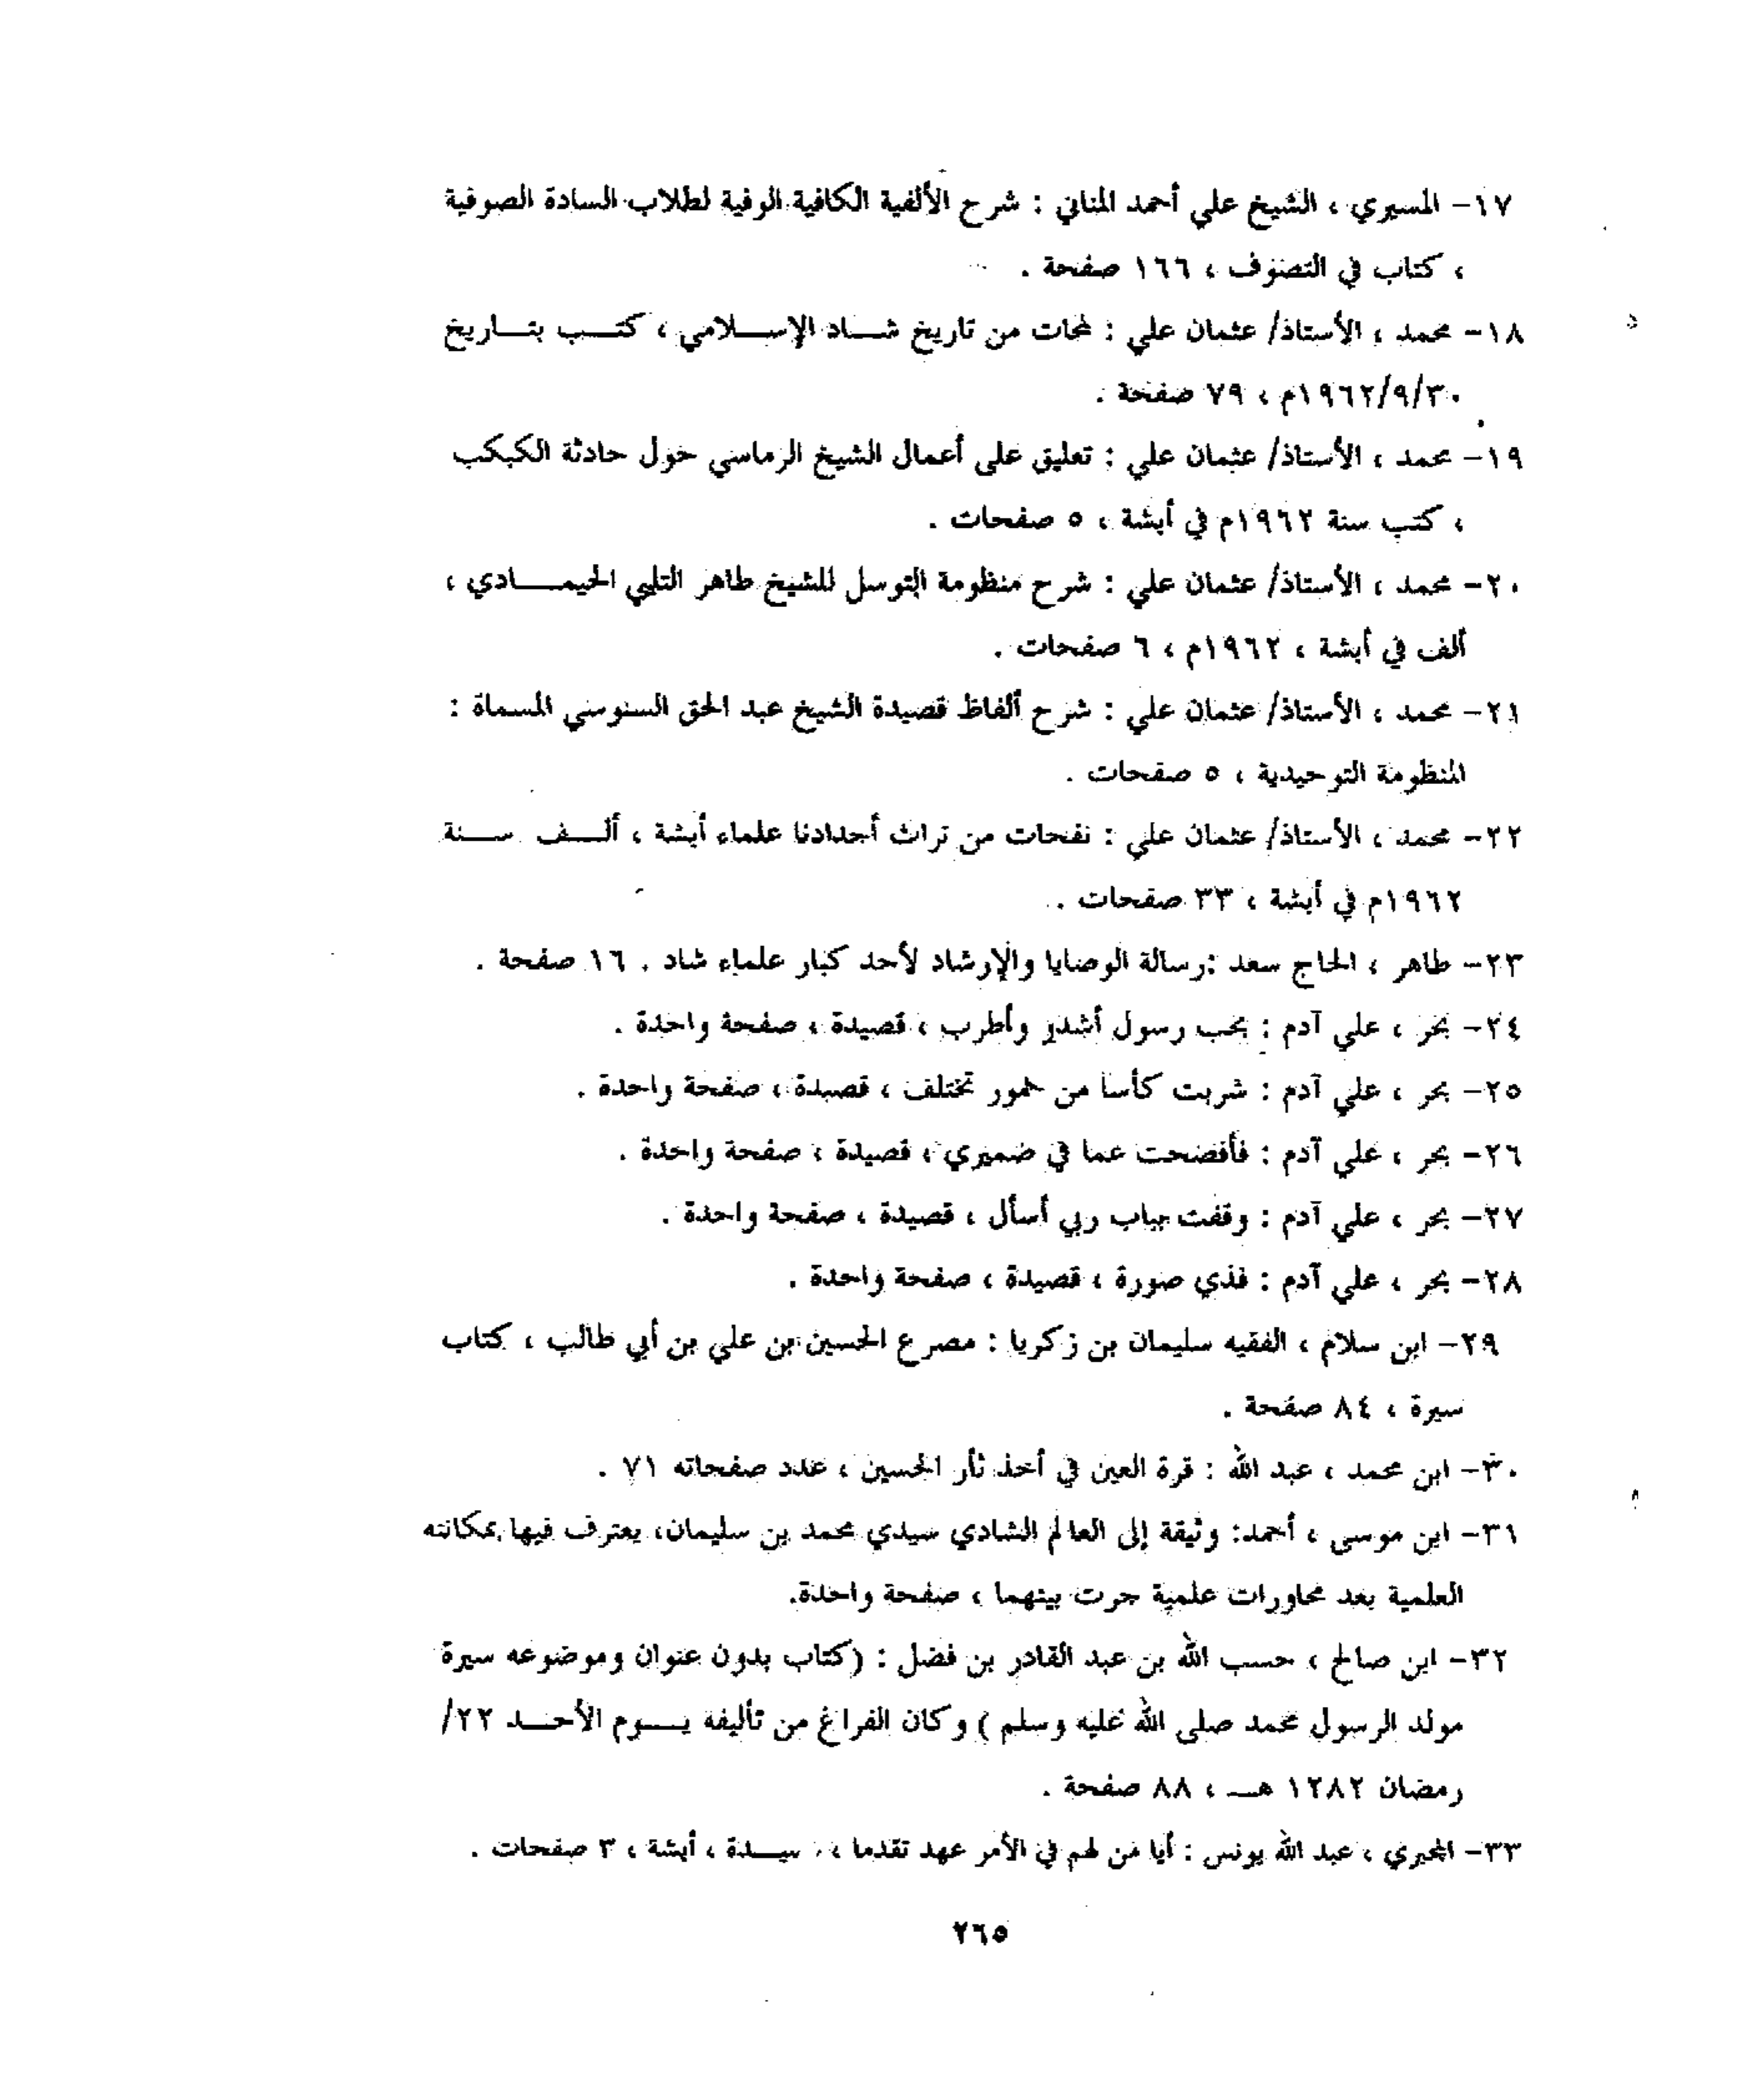 ١٧- المسيري ، الشيخ علي أحمد المناني : شرح الألفية الكافية الوفية لطلاب السادة الصوفية
، كتاب في التصوف ، ١٦٦ صفحة .
١٨- محمد ، الأستاذ/ عثمان علي : لمحات من تاريخ شاد الإسلامي ، كتب بتاريخ
١٩٦٢/٩/٣٠م ، ٧٩ صفحة .
١٩- محمد ، الأستاذ/ عثمان علي : تعليق على أعمال الشيخ الرماسي حول حادثة الكبكب
، كتب سنة ١٩٦٢م في أبشة ، ٥ صفحات .
٢٠- محمد ، الأستاذ/ عثمان علي : شرح منظومة التوسل للشيخ طاهر التلبي الحيمادي ،
ألف في أبشة ، ١٩٦٢م ، ٦ صفحات .
٢١- محمد ، الأستاذ/ عثمان علي : شرح ألفاظ قصيدة الشيخ عبد الحق السنوسي المسماة :
المنظومة التوحيدية ، ٥ صفحات .
٢٢- محمد ، الأستاذ/ عثمان علي : نفحات من تراث أجدادنا علماء أبشة ، ألف سنة
١٩٦٢م في أبشة ، ٣٣ صفحات .
٢٣- طاهر ، الحاج سعد :رسالة الوصايا والإرشاد لأحد كبار علماء شاد . ١٦ صفحة .
٢٤- بحر ، علي آدم : بحب رسول أشدو وأطرب ، قصيدة ، صفحة واحدة .
٢٥- بحر ، علي آدم : شربت كأسا من خمور تختلف ، قصيدة ، صفحة واحدة .
٢٦- بحر ، علي آدم : فأفضحت عما في ضميري ، قصيدة ، صفحة واحدة .
٢٧- بحر ، علي آدم : وقفت بباب ربي أسأل ، قصيدة ، صفحة واحدة .
٢٨- بحر ، علي آدم : فذي صورة ، قصيدة ، صفحة واحدة .
٢٩- ابن سلام ، الفقيه سليمان بن زكريا : مصرع الحسين بن علي بن أبي طالب ، كتاب
سيرة ، ٨٤ صفحة .
٣٠- ابن محمد ، عبد الله : قرة العين في أخذ ثأر الحسين ، عدد صفحاته ٧١ .
٣١- ابن موسى ، أحمد: وثيقة إلى العالم الشادي سيدي محمد بن سليمان، يعترف فيها بمكانته
العلمية بعد محاورات علمية جرت بينهما ، صفحة واحدة.
٣٢- ابن صالح ، حسب الله بن عبد القادر بن فضل : (كتاب بدون عنوان وموضوعه سيرة
مولد الرسول محمد صلى الله عليه وسلم ) وكان الفراغ من تأليفه يوم الأحد ٢٢/
رمضان ١٢٨٢ هـ ، ٨٨ صفحة .
٣٣- ، عبد الله يونس : أيا من لهم في الأمر عهد تقدما ، ، أبشة ، ٣ صفحات .
٢٦٥